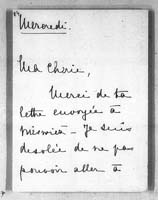 Mercredi.
Ma Chérie,
Merci de ta
lettre envoyée à
. Je suis
desolée de ne pas
pouvoir aller à